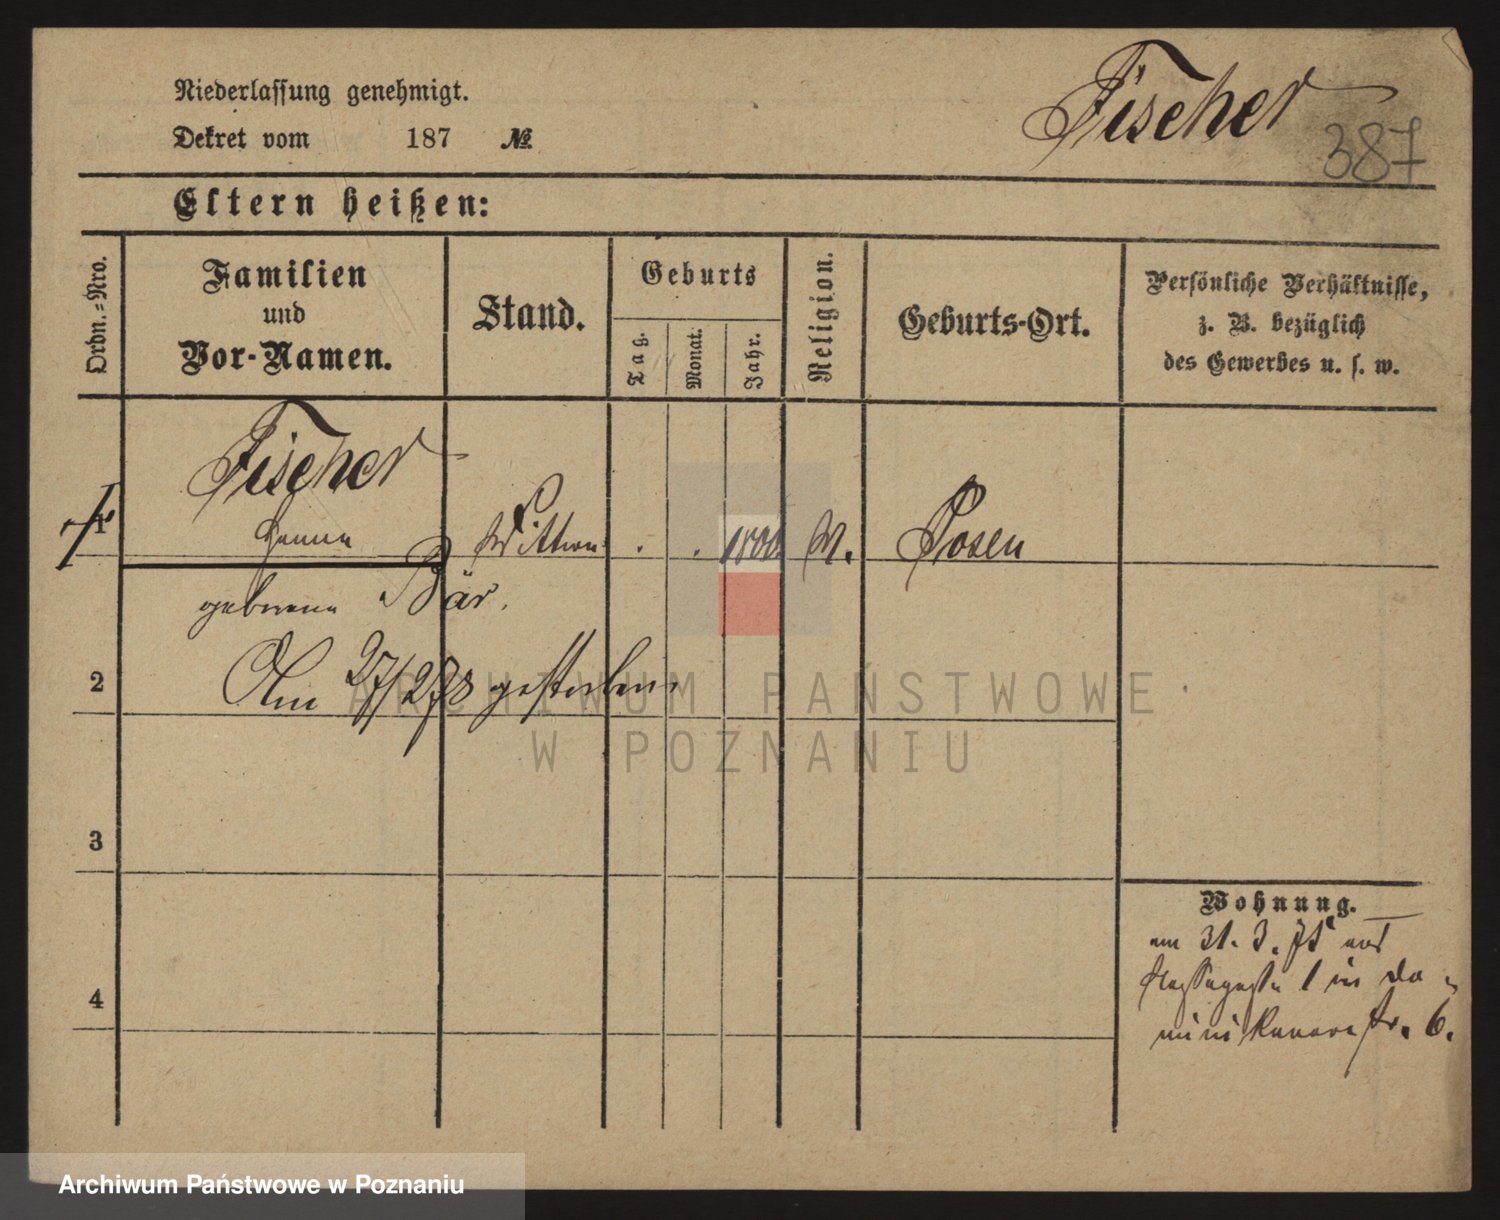 Niederlassung genehmigt.
Dekret vom 187 №
Fischer
387
Eltern heißen:
Ordn.=Nro.
Familien
und
Vor-Namen.
Stand.
Geburts
Tag.
Monat.
Jahr.
Religion.
Geburts-Ort.
Persönliche Verhältnisse,
z. B. bezüglich
des Gewerbes u. s. w.
Fischer
1
Wittwe
1800
M.
Posen
geborene Bär.
2
Am 27/2 78 gestorben.
3
4
Wohnung.
am 31. 3. 75 aus
1 in Do-
minikanerstr. 6.
ARCHIWUM PAŃSTWOWE
W POZNANIU
Archiwum Państwowe w Poznaniu